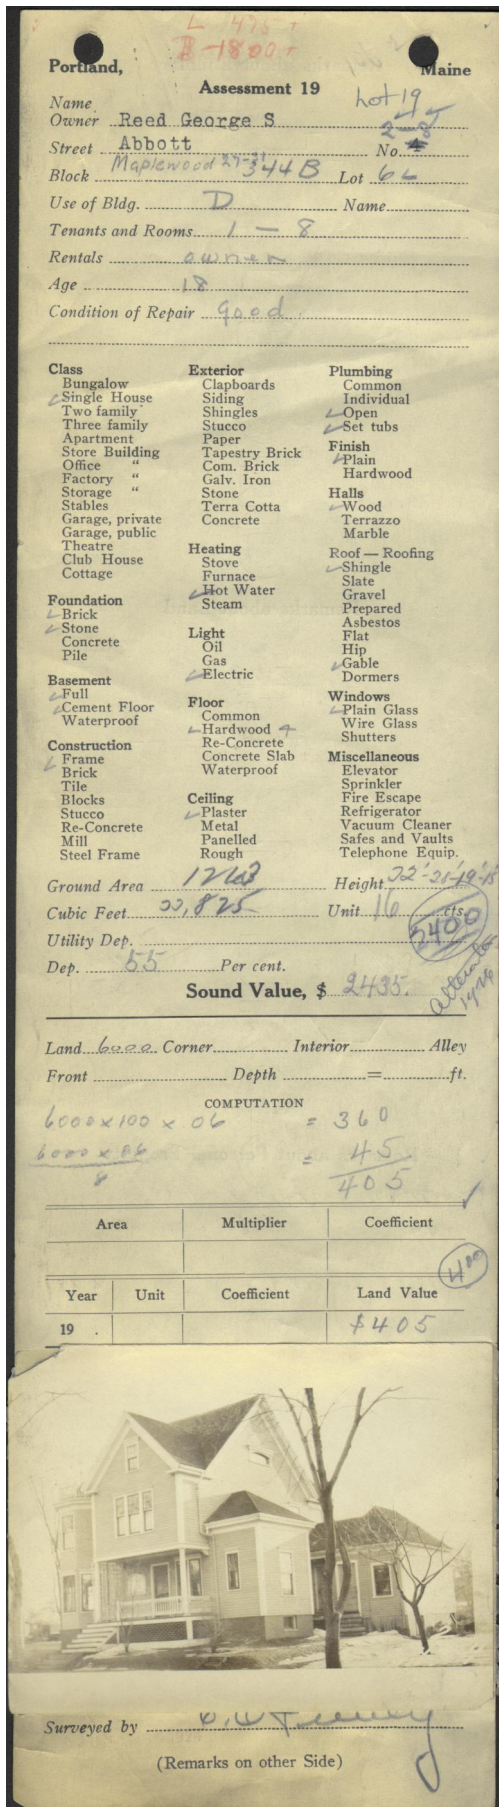 L 475 +
B-1800+
Portland, Maine
Assessment 19
Lot 19
Name
Owner Reed George S 2-8
Street Abbott No.
Block Maplewood 27-31 344 B Lot 6
Use of Bldg. D Name
Tenants and Rooms 1 - 8
Rentals owner
Age 18
Condition of Repair Good
Class
Bungalow
Single House
Two family
Three family
Apartment
Store Building
Office "
Factory "
Storage "
Stables
Garage, private
Garage, public
Theatre
Club House
Cottage
Foundation
Brick
Stone
Concrete
Pile
Basement
Full
Cement Floor
Waterproof
Construction
Frame
Brick
Tile
Blocks
Stucco
Re-Concrete
Mill
Steel Frame
Exterior
Clapboards
Siding
Shingles
Stucco
Paper
Tapestry Brick
Com. Brick
Galv. Iron
Stone
Terra Cotta
Concrete
Heating
Stove
Furnace
Hot Water
Steam
Light
Oil
Gas
Electric
Floor
Common
Hardwood
Re-Concrete
Concrete Slab
Waterproof
Ceiling
Plaster
Metal
Panelled
Rough
Plumbing
Common
Individual
Open
Set tubs
Finish
Plain
Hardwood
Halls
Wood
Terrazzo
Marble
Roof — Roofing
Shingle
Slate
Gravel
Prepared
Asbestos
Flat
Hip
Gable
Dormers
Windows
Plain Glass
Wire Glass
Shutters
Miscellaneous
Elevator
Sprinkler
Fire Escape
Refrigerator
Vacuum Cleaner
Safes and Vaults
Telephone Equip.
Ground Area 1263 Height
Cubic Feet 33,825 Unit 16 cts.
Utility Dep. 2400
Dep. 55 Per cent.
Sound Value, $ 2435.
Land 6000 Corner Interior Alley
Front Depth = ft.
COMPUTATION
6000 x 100 x 06 = 360
6000 x 06 = 45
8 405
Area Multiplier Coefficient
400
Year Unit Coefficient Land Value
19 . $405
Surveyed by
(Remarks on other Side)